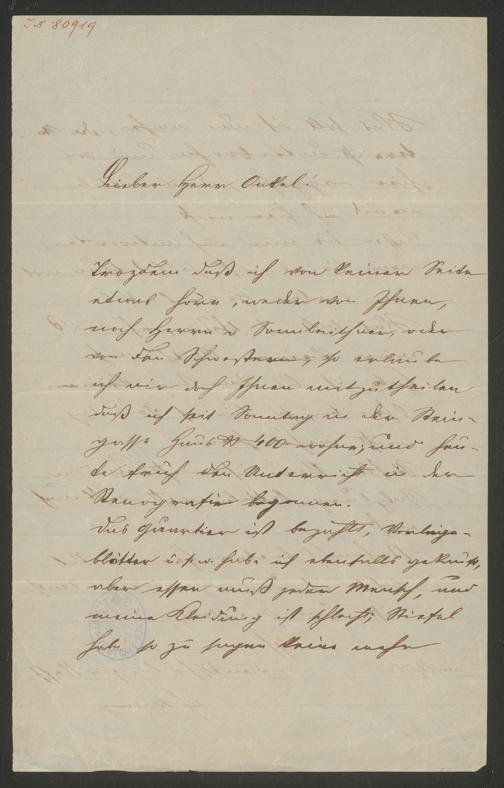 I N 80919
Lieber Herr Onkel!
Trozdem daß ich von keiner Seite
etwas höre, weder von Ihnen,
noch Herrn v Sonnleithner, oder
von den Schwestern, so erlaube
ich mir doch Ihnen mitzutheilen
daß ich seit Sonntag in der Stein-
gasse Haus N 400 wohne, und heu-
te früh den Unterricht in der
Stenografie begonnen.
Das Quartier ist bezahlt, Vorlege-
blätter u. s. w. habe ich ebenfalls gekauft,
aber essen muß jeder Mensch, und
meine Kleidung ist schlecht; Stiefel
habe so zu sagen keine mehr